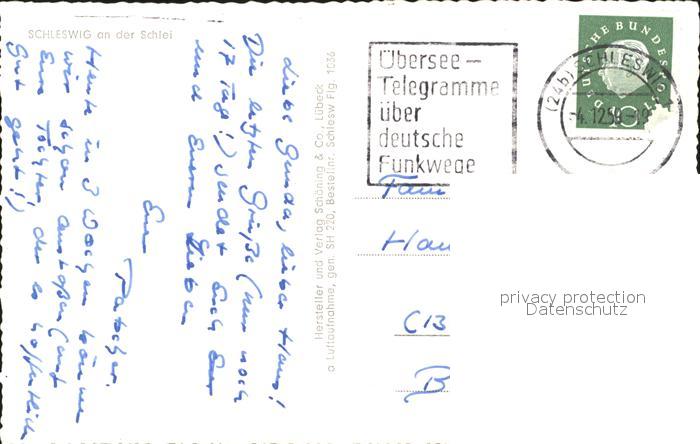 SCHLESWIG an der Schlei
Liebe Gunda, lieber Hans!
Die letzten Grüße (nur noch
17 Tage!) sendet Euch Eur
und Eueren Lieben
Eur
Heute in 3 Wochen können
wir schon anstoßen (auf
Eure Tochter, der es hoffentlich
Gut geht!)
Hersteller und Verlag Schöning & Co., Lübeck
a Luftaufnahme, gen. SH 220, Bestellnr. Schlesw Flg. 1036
Übersee-
Telegramme
über
deutsche
Funkwege
(24b) SCHLESWIG
-4.12.59
DEUTSCHE BUNDESPOST
10
Fam
Han
privacy protection
Datenschutz